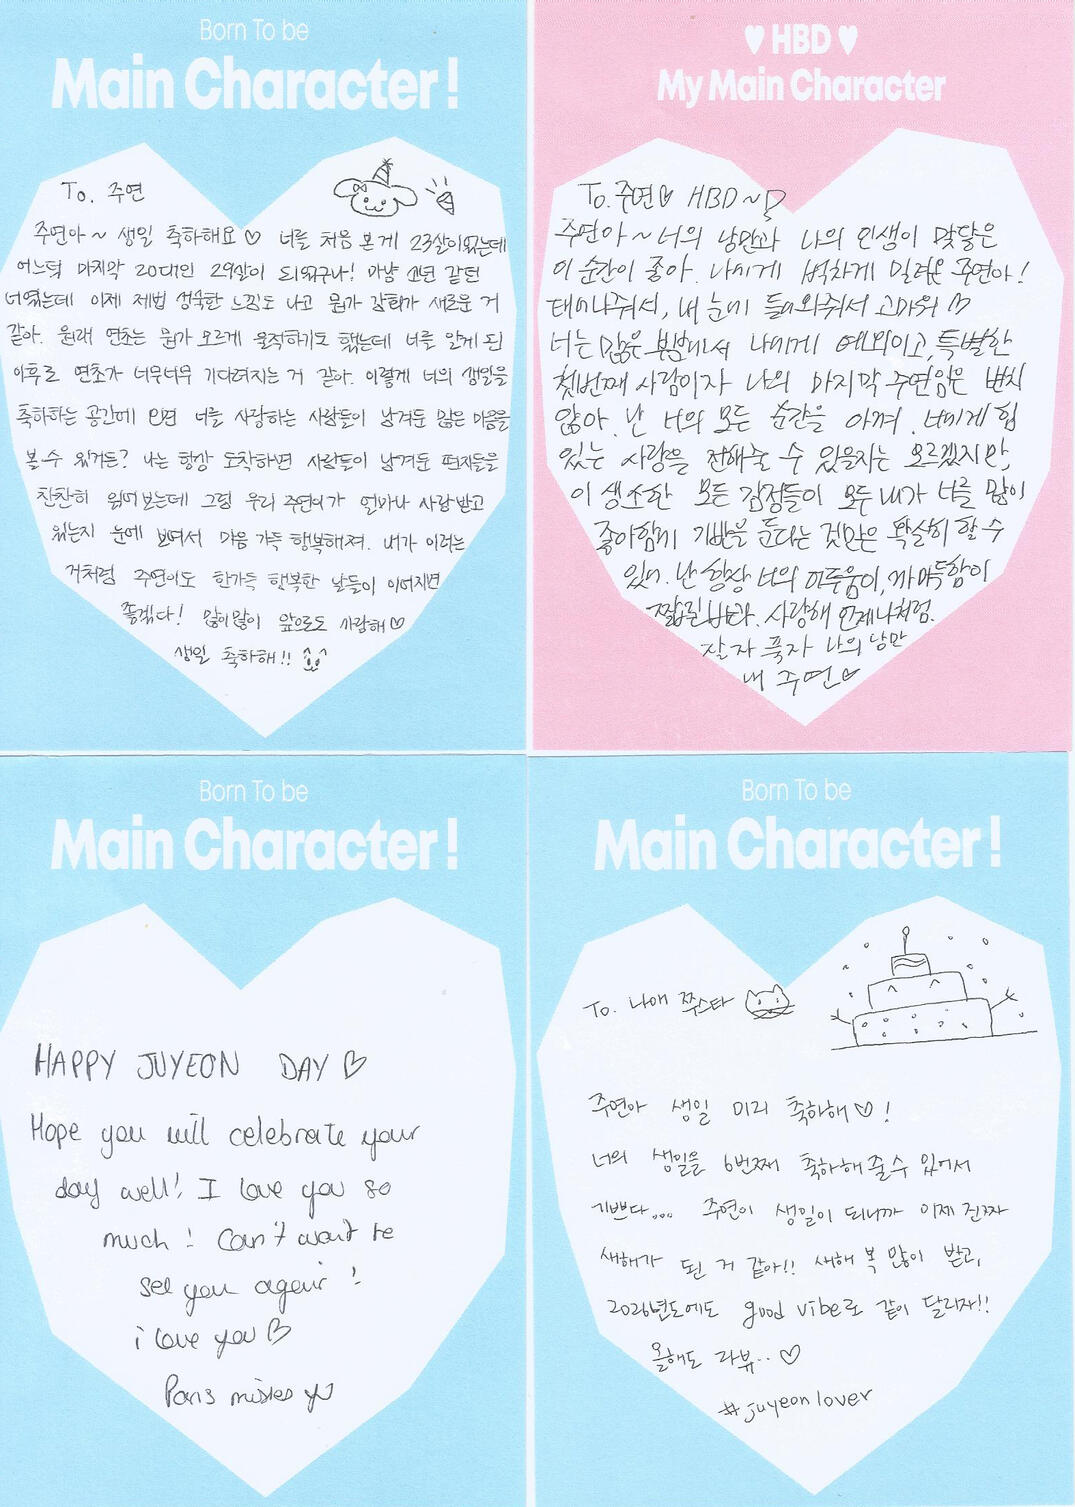 Born To be
Main Character!
To. 주연
주연아~ 생일 축하해요♡ 너를 처음 본게 23살이었는데
어느덧 마지막 20대인 29살이 되었구나! 마냥 소년 같던
너였는데 이제 제법 성숙한 느낌도 나고 뭔가 감회가 새로운 거
같아. 원래 연초는 뭔가 모르게 울적하기도 했는데 너를 알게 된
이후로 연초가 너무너무 기다려지는 거 같아. 이렇게 너의 생일을
축하하는 공간에 오면 너를 사랑하는 사람들이 남겨둔 많은 마음을
볼 수 있거든? 나는 항상 도착하면 사람들이 남겨둔 편지들을
찬찬히 읽어보는데 그럼 우리 주연이가 얼마나 사랑받고
있는지 눈에 보여서 마음 가득 행복해져. 내가 이러는
거처럼 주연이도 한가득 행복한 날들이 이어지면
좋겠다! 많이많이 앞으로도 사랑해♡
생일 축하해!!
♥ HBD ♥
My Main Character
To. 주연♡ HBD~
주연아~ 너의 낭만과 나의 인생이 맞닿은
이 순간이 좋아. 나에게 벅차게 밀려온 주연아!
태어나줘서, 내 눈에 들어와줘서 고마워♡
너는 많은 부분에서 나에게 예외이고, 특별한
첫번째 사람이자 나의 마지막 주연임은 변치
않아. 난 너의 모든 순간을 아껴. 너에게 힘
있는 사랑을 전해줄 수 있을지는 모르겠지만,
이 생소한 모든 감정들이 모두 내가 너를 많이
좋아함에 기반을 둔다는 것만은 확실히 할 수
있어. 난 항상 너의 어두움이, 까마득함이
짧길 바라. 사랑해 언제나처럼.
잘자 푹자 나의 낭만
내 주연♡
Born To be
Main Character!
HAPPY JUYEON DAY♡
Hope you will celebrate your
day well! I love you so
much! Can't wait to
see you again!
i love you♡
Paris misses you
Born To be
Main Character!
To. 나애 쭈스타
주연아 생일 미리 축하해♡!
너의 생일을 6번째 축하해줄 수 있어서
기쁘다... 주연이 생일이 되니까 이제 진짜
새해가 된 거 같아!! 새해 복 많이 받고,
2026년도에도 good vibe로 같이 달리자!!
올해도 라뷰..♡
#juyeonlover